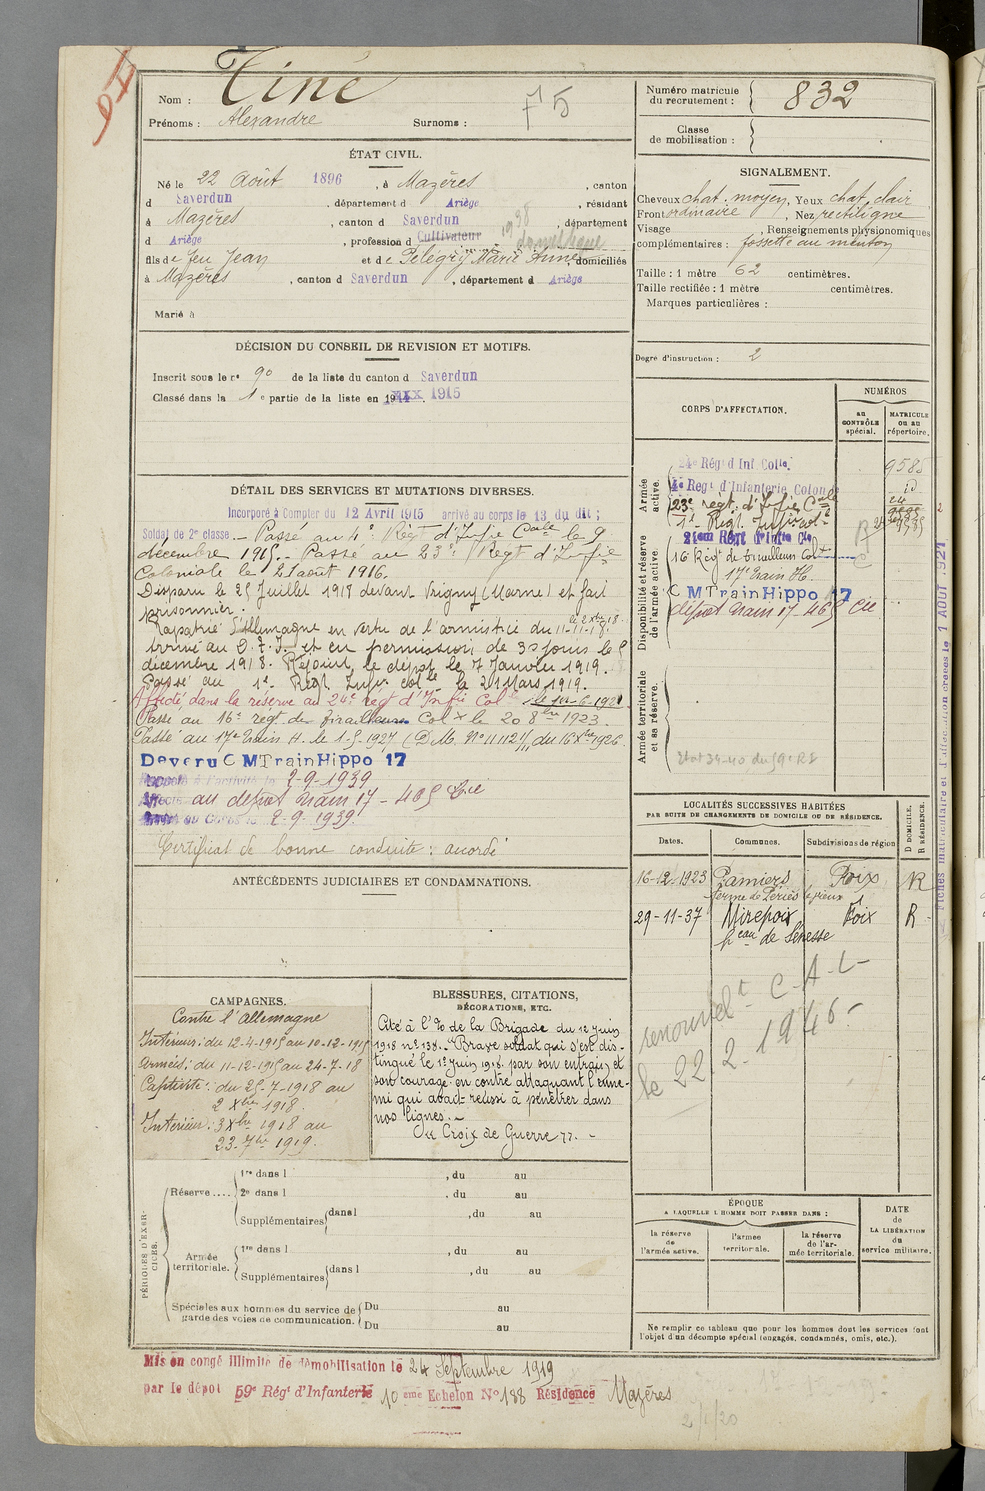 Nom : Tiné
Prénoms : Alexandre Surnoms :
F 5
ÉTAT CIVIL.
Né le 22 Août 1896, à Mazères, canton
d Saverdun, département d Ariège, résidant
à Mazères, canton d Saverdun, département
d Ariège, profession d Cultivateur 1938 domestique
fils de feu Jean et de Pélegry Marie Anne, domiciliés
à Mazères, canton d Saverdun, département d Ariège
Marié à
DÉCISION DU CONSEIL DE REVISION ET MOTIFS.
Inscrit sous le n° 90 de la liste du canton d Saverdun
Classé dans la 1e partie de la liste en 1915
DÉTAIL DES SERVICES ET MUTATIONS DIVERSES.
Incorporé à Compter du 12 Avril 1915 arrivé au corps le 13 du dit ;
Soldat de 2e classe. - Passé au 4e Régt d'Infie Cale le 9
décembre 1915. - Passé au 23e Régt d'Infie
Coloniale le 21 août 1916.
Disparu le 25 Juillet 1918 devant Vrigny (Marne) et fait
prisonnier.
Rapatrié d'Allemagne en vertu de l'armistice du 11-11-18. le 2 Xbre 18
Arrivé au D.T.I. et en permission de 30 jours le 5
décembre 1918. Rejoint le dépôt le 7 Janvier 1919.
Passé au 1er Régt Infie colle le 21 Mars 1919.
Affecté dans la réserve au 24e régt d'Infie Colle le 1er-6-1921
Passé au 16e régt de tirailleurs Colx le 20 8bre 1923.
Passé au 17e Train H. le 1-5-1927 (D.M. N° 11112 1/11 du 16 Xbre 1926
Devenu C M Train Hippo 17
Rappelé à l'activité le 2-9-1939
Affecté au dépôt train 17 - 405 Cie
Arrivé au Corps le 2-9-1939.
Certificat de bonne conduite : accordé
ANTÉCÉDENTS JUDICIAIRES ET CONDAMNATIONS.
CAMPAGNES.
Contre l'Allemagne
Intérieur : du 12-4-1915 au 10-12-1915
Armées : du 11-12-1915 au 24-7-18
Captivité : du 25-7-1918 au
2 Xbre 1918.
Intérieur : 3 Xbre 1918 au
23-7bre 1919.
BLESSURES, CITATIONS,
DÉCORATIONS, ETC.
Cité à l'% de la Brigade du 12 Juin
1918 n° 138. - "Brave soldat qui s'est dis-
tingué le 1er Juin 1918 par son entrain et
son courage en contre attaquant l'enne-
mi qui avait réussi à pénétrer dans
nos lignes. -
Ou Croix de Guerre". -
PÉRIODES D'EXERCICES.
Réserve ....
1re dans l , du au
2e dans l , du au
Supplémentaires dans l , du au
Armée territoriale.
1re dans l , du au
Supplémentaires dans l , du au
Spéciales aux hommes du service de
garde des voies de communication.
Du au
Du au
Mis en congé illimité de démobilisation le 24 Septembre 1919
par le dépôt 59e Régt d'Infanterie 10ème Echelon N° 188 Résidence Mazères
2/1/20
Numéro matricule
du recrutement : 832
Classe
de mobilisation :
SIGNALEMENT.
Cheveux chat. moyen, Yeux chat. clair
Front ordinaire, Nez rectiligne
Visage , Renseignements physionomiques
complémentaires : fossette au menton
Taille : 1 mètre 62 centimètres.
Taille rectifiée : 1 mètre centimètres.
Marques particulières :
Degré d'instruction : 2
CORPS D'AFFECTATION.
NUMÉROS
au
CONTRÔLE
spécial.
MATRICULE
ou au
répertoire.
Armée active.
24e Régt d'Inf Colle. 9585
4e Régt d'Infanterie Colon id
23e régt d'Infie Cale
1er Régt. Inf. col.
Disponibilité et réserve de l'armée active.
24ème Régt d'Infie Cle
16 Régt de tirailleurs Colx
17e Train H.
C M Train Hippo 17
dépôt train 17 - 405 Cie
Armée territoriale et sa réserve.
Fiches matriculaire et d'affectation créées le 1 AOUT 1927
LOCALITÉS SUCCESSIVES HABITÉES
PAR SUITE DE CHANGEMENTS DE DOMICILE OU DE RÉSIDENCE.
D DOMICILE. R RÉSIDENCE.
Dates. Communes. Subdivisions de région
16-12-1923 Pamiers Foix R
ferme de Périès
29-11-37 Mirepoix Foix R
heau de Senesse
renouvelt C-A-L-
le 22.2.1946-
ÉPOQUE
A LAQUELLE L'HOMME DOIT PASSER DANS :
la réserve
de
l'armée active.
l'armée
territoriale.
la réserve
de l'ar-
mée territoriale.
DATE
de
LA LIBÉRATION
du
service militaire.
Ne remplir ce tableau que pour les hommes dont les services font
l'objet d'un décompte spécial (engagés, condamnés, omis, etc.).